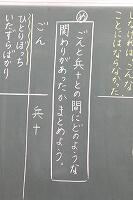 ければ、こんな
ことにはならなかった。
め
ごんと兵十との間にどのような
関わりがあったかまとめよう。
兵十
ごん
ひとりぼっち
いたずらばかり